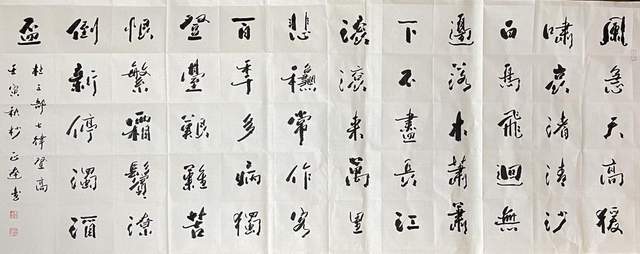 風急天高猨
嘯哀渚清沙
白鳥飛迴無
邊落木蕭蕭
下不盡長江
滾滾來萬里
悲穐常作客
百年多病獨
登臺艱難苦
恨繁霜鬢潦
倒新停濁酒
盃
杜工部七律登高
壬寅秋杪正書